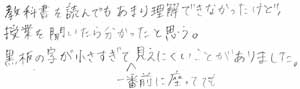 教科書を読んでもあまり理解できなかったけど、
授業を聞いたら分かったと思う。
黒板の字が小さすぎて見えにくいことがありました。
一番前に座ってても